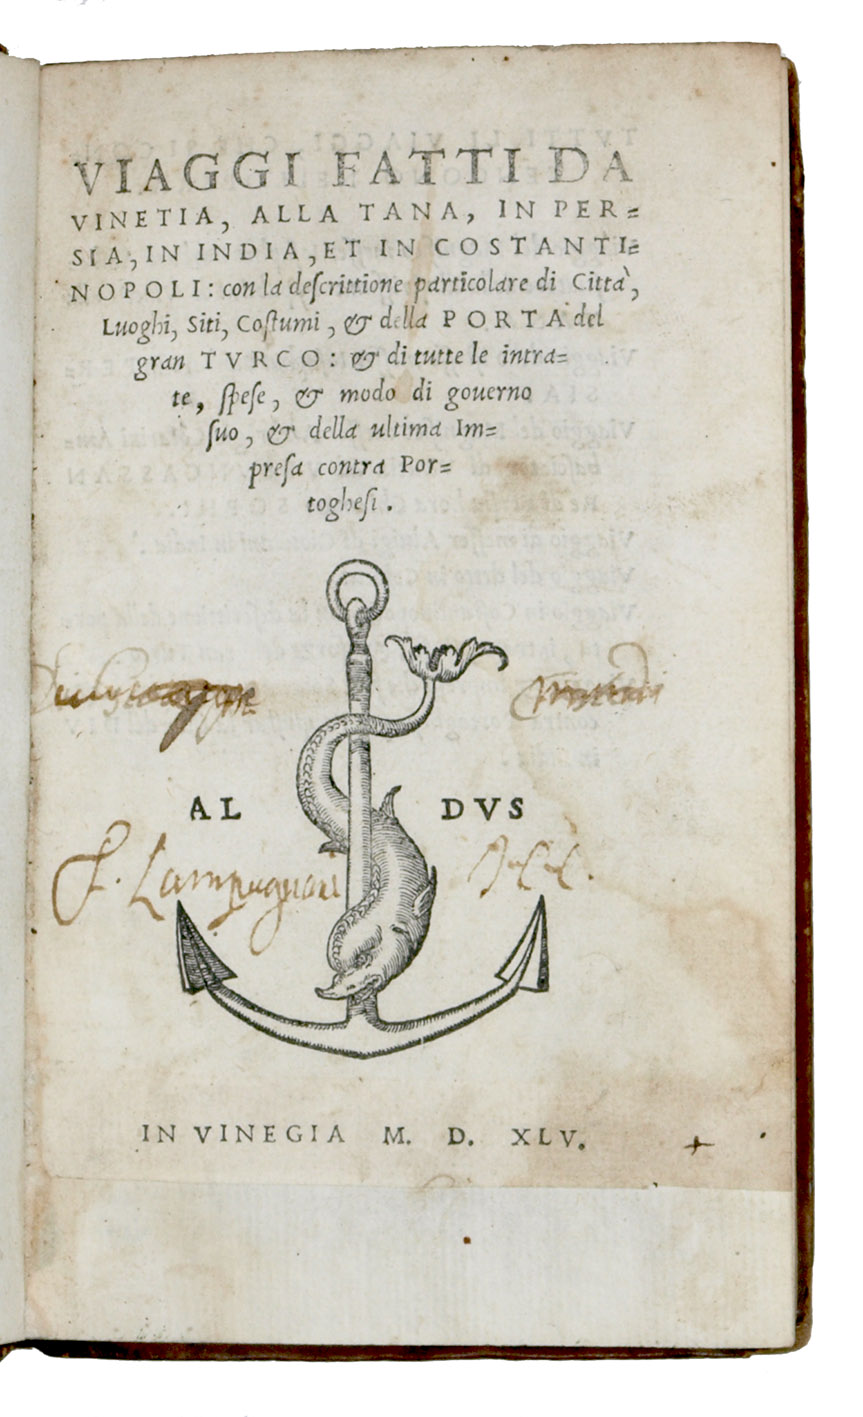 VIAGGI FATTI DA
VINETIA, ALLA TANA, IN PER=
SIA, IN INDIA, ET IN COSTANTI=
NOPOLI: con la deſcrittione particolare di Città,
Luoghi, Siti, Coſtumi, & della PORTA del
gran TVRCO: & di tutte le intra=
te, ſpeſe, & modo di gouerno
ſuo, & della ultima Im=
preſa contra Por=
togheſi.
AL DVS
Lampugnani
IN VINEGIA M. D. XLV.